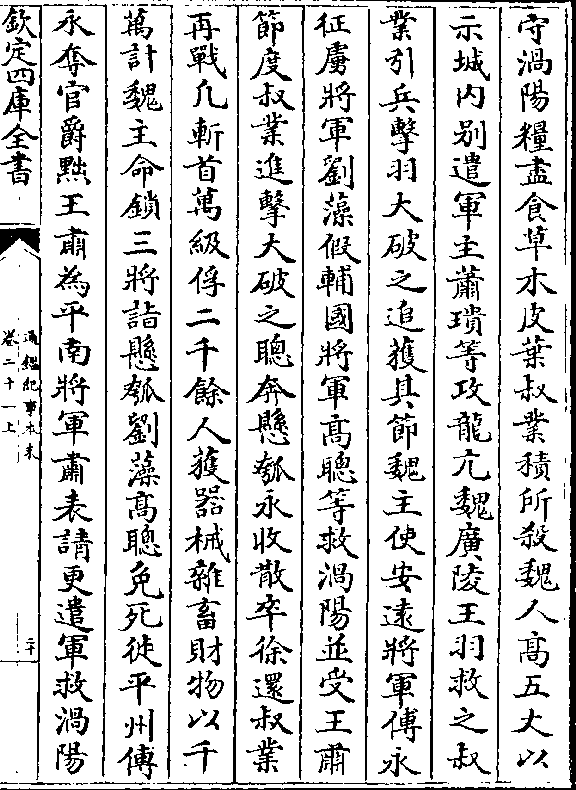 守渦陽糧盡食草木皮葉叔業積所殺魏人髙五丈以
示城内别遣軍主蕭璝等攻龍亢魏廣陵王羽救之叔
業引兵擊羽大破之追獲其節魏主使安逺將軍傅永
征虜將軍劉藻假輔國將軍髙聰等救渦陽並受王肅
節度叔業進擊大破之聰奔懸瓠永收散卒徐還叔業
再戰凡斬首萬級俘二千餘人獲器械雜畜財物以千
萬計魏主命鎖三將詣懸瓠劉藻髙聰免死徙平州傅
永奪官爵黜王肅為平南將軍肅表請更遣軍救渦陽
欽定四庫全書
通鑑紀事本末
卷二十一上
二十